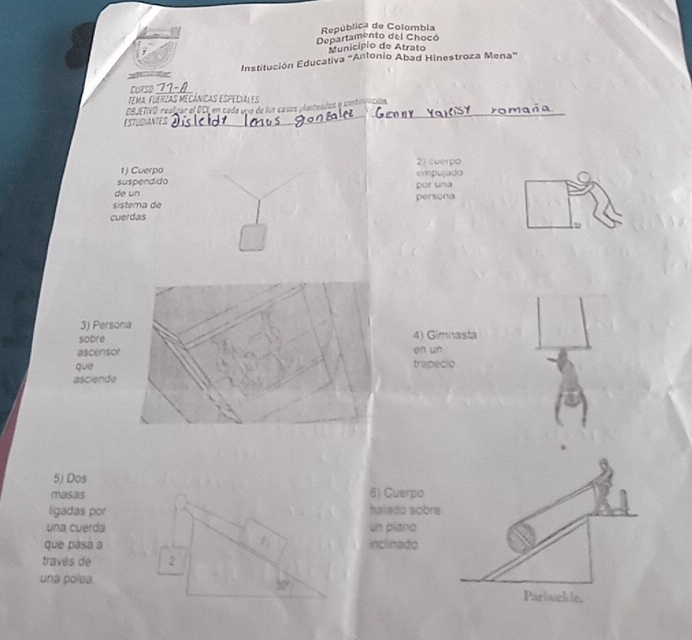 República de Colombia
Departamento del Chocó
Municipio de Atrato
Institución Educativa "Antonio Abad Hinestroza Mena"
CURSO 11-A
TEMA: FUERZAS MECÁNICAS ESPECIALES
OBJETIVO: realizar el DCL en cada uno de los casos planteados a continuación.
ESTUDIANTES: Disleidy lemus gonzalez Genny Yarlisy romaña
1) Cuerpo
suspendido
de un
sistema de
cuerdas
2) cuerpo
empujado
por una
persona.
3) Persona
sobre
ascensor
que
asciende
4) Gimnasta
en un
trapecio
5) Dos
masas
ligadas por
una cuerda
que pasa a
través de
una polea.
2
6) Cuerpo
halado sobre
un plano
inclinado
Parbuckle.